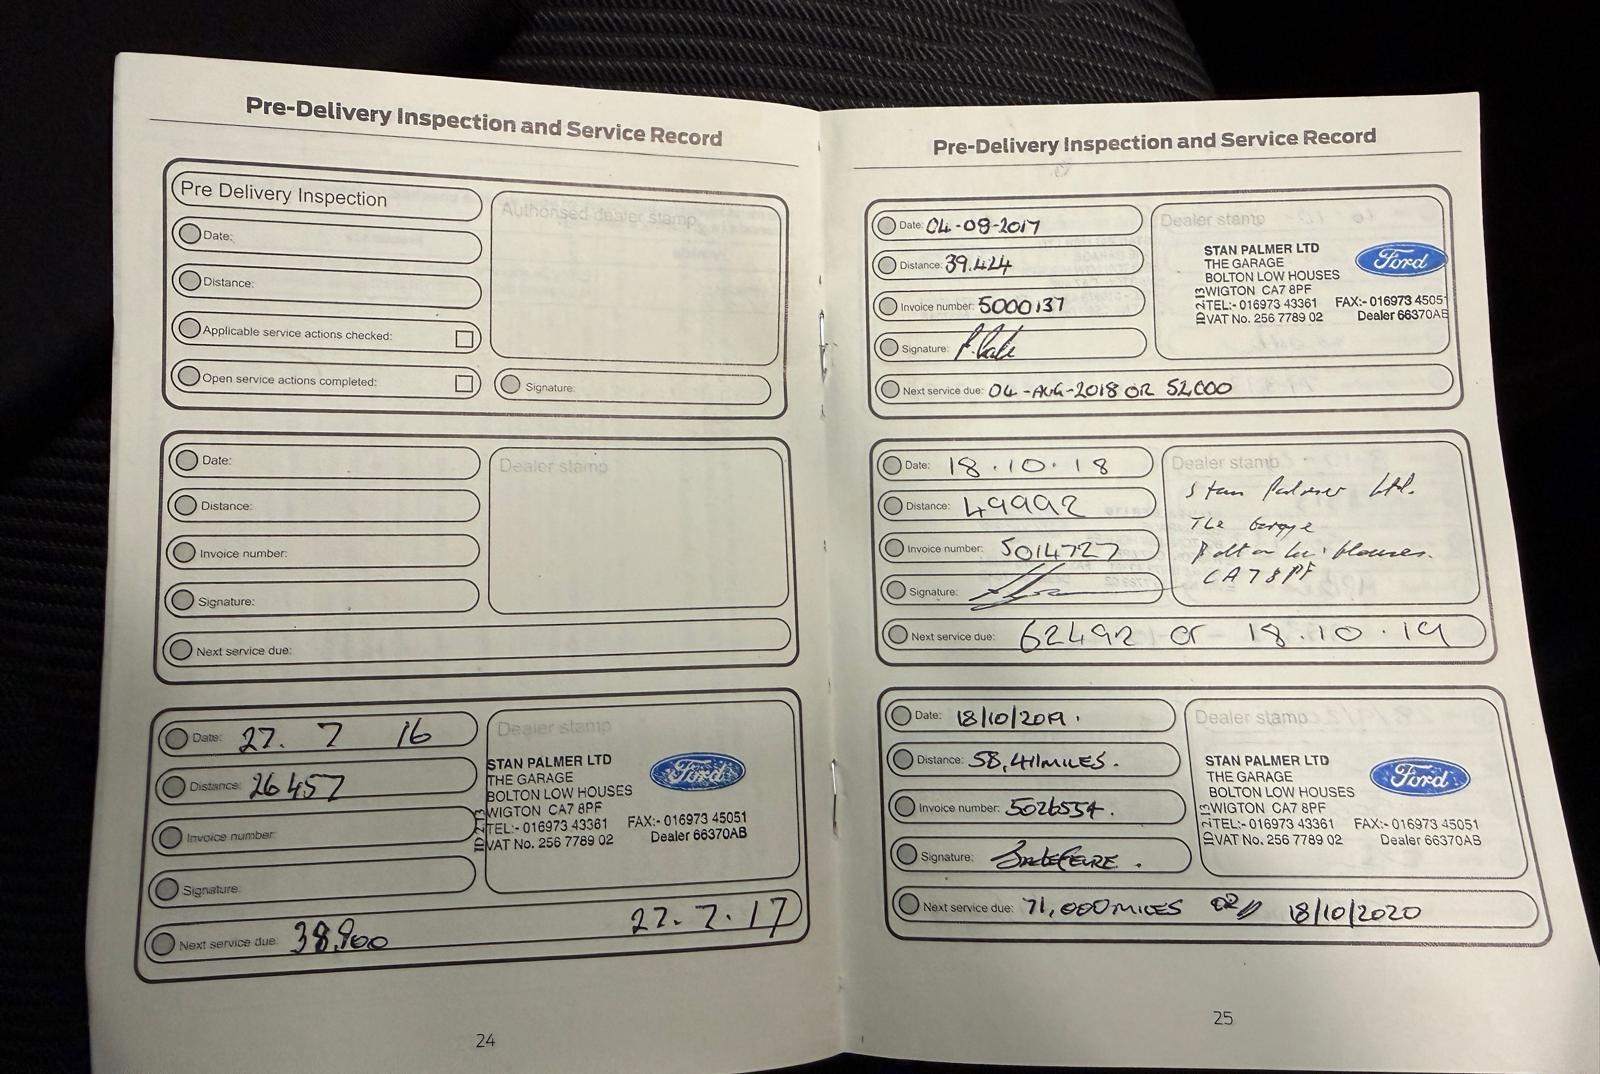 Pre-Delivery Inspection and Service Record
Pre Delivery Inspection
Date:
Distance:
Applicable service actions checked:
Open service actions completed:
Authorised dealer stamp
Signature:
Date:
Distance:
Invoice number:
Signature:
Next service due:
Dealer stamp
Date: 27. 7 16
Distance: 26457
Invoice number:
Signature:
Next service due: 38,900 27.7.17
Dealer stamp
STAN PALMER LTD
THE GARAGE
BOLTON LOW HOUSES
WIGTON CA7 8PF
TEL:- 016973 43361 FAX:- 016973 45051
VAT No. 256 7789 02 Dealer 66370AB
Ford
24
Pre-Delivery Inspection and Service Record
Date: 04-08-2017
Distance: 39.424
Invoice number: 5000137
Signature:
Next service due: 04-AUG-2018 OR 52000
Dealer stamp
STAN PALMER LTD
THE GARAGE
BOLTON LOW HOUSES
WIGTON CA7 8PF
TEL:- 016973 43361 FAX:- 016973 4505
VAT No. 256 7789 02 Dealer 66370AB
Ford
Date: 18.10.18
Distance: 49992
Invoice number: 5014727
Signature:
Next service due: 62492 or 18.10.19
Dealer stamp
Stan Palmer Ltd.
The Garage
Bolton Low Houses.
CA7 8PF
Date: 18/10/2019.
Distance: 58,411MILES.
Invoice number: 5026554.
Signature:
Next service due: 71,000MILES OR 18/10/2020
Dealer stamp
STAN PALMER LTD
THE GARAGE
BOLTON LOW HOUSES
WIGTON CA7 8PF
TEL:- 016973 43361 FAX:- 016973 45051
VAT No. 256 7789 02 Dealer 66370AB
Ford
25